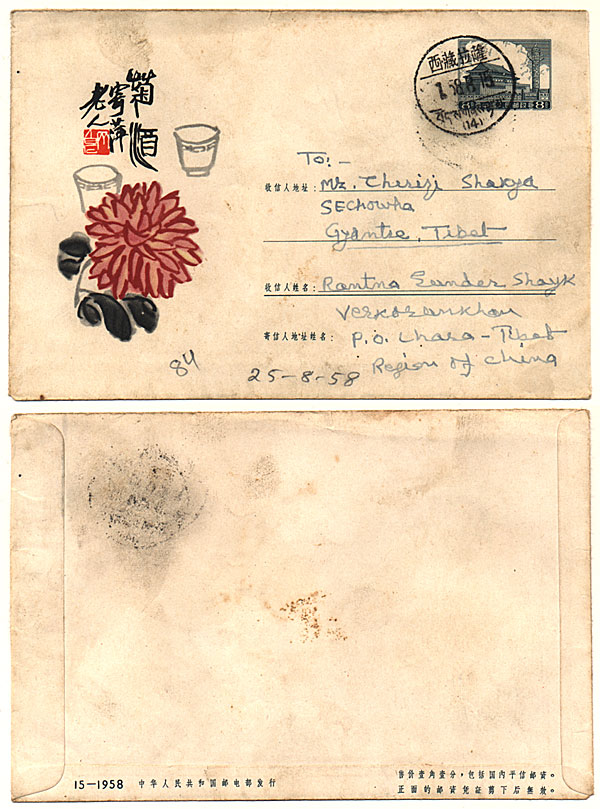 菊酒
寄萍
老人
西藏拉薩
(14)
8
To:-
收信人地址:
Mr. Cheriji Shakya
Sechowha
Gyantse, Tibet
收信人姓名:
Rantna Sander Shayk
寄信人地址姓名:
P.O. Lhasa - Tibet
Region of China
84
25-8-58
15—1958 中华人民共和国邮电部发行
售价壹角壹分,包括国内平信邮资。
正面的邮资凭証剪下后無效。